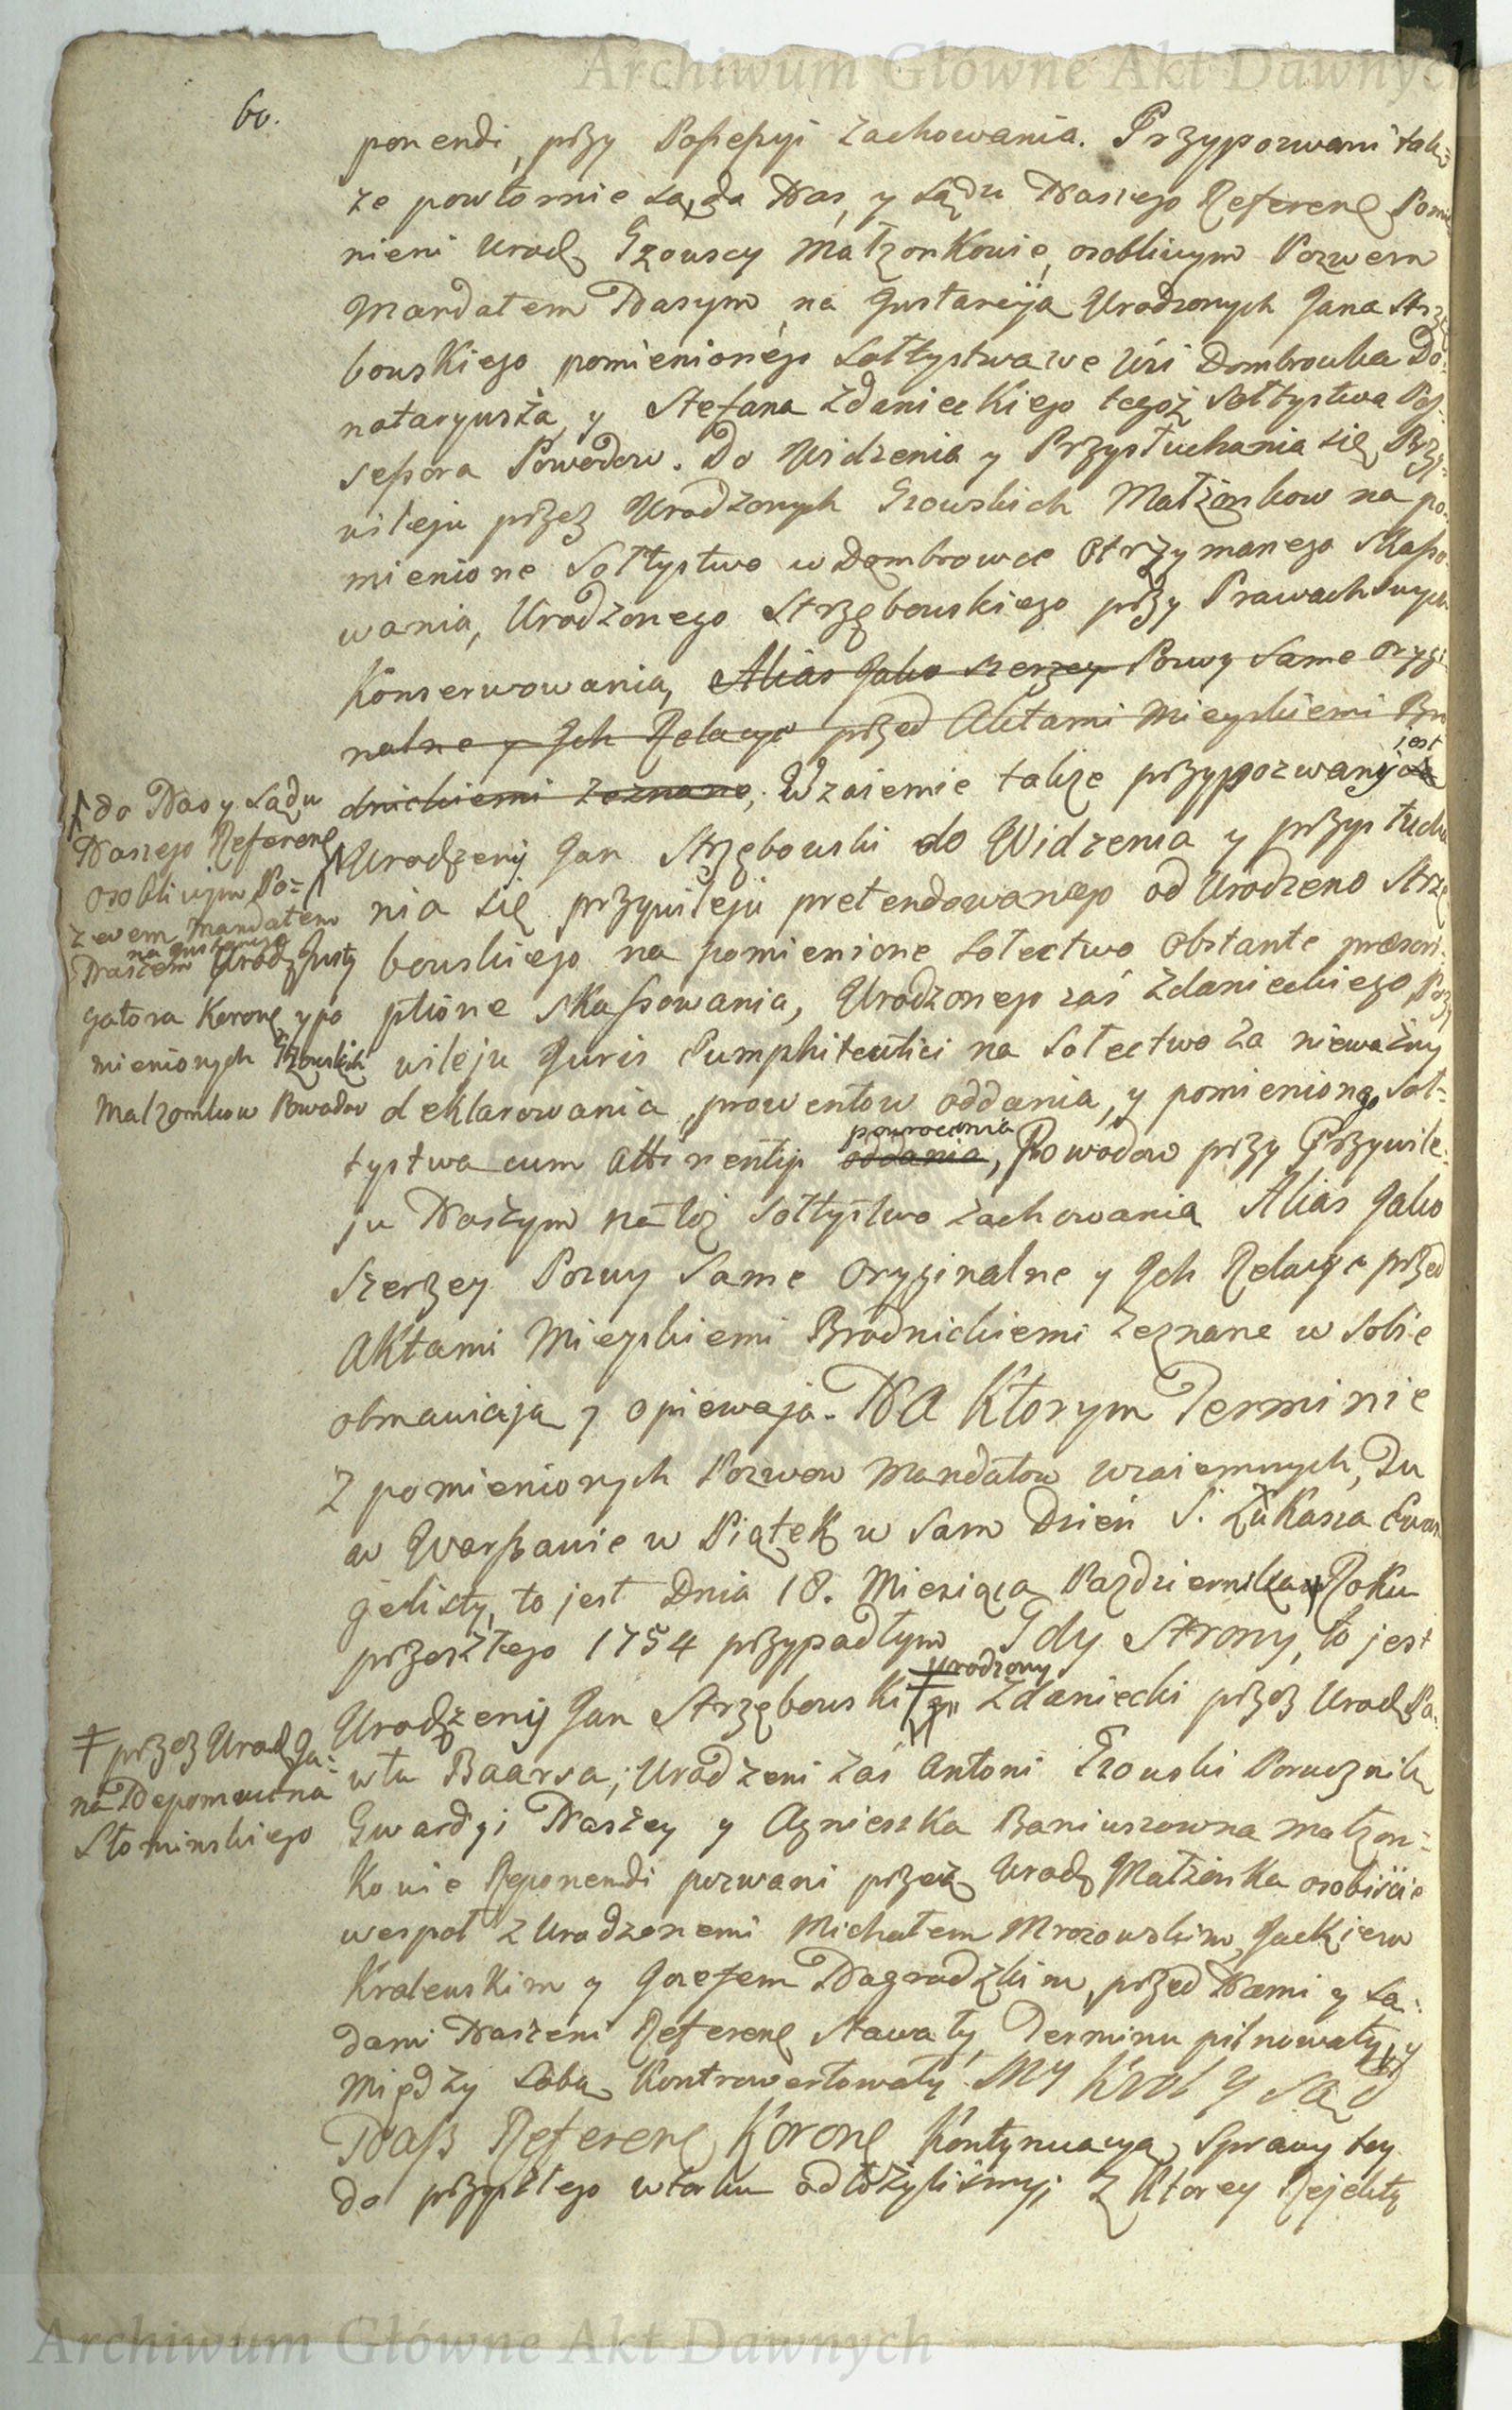 Archiwum Główne Akt Dawnych
60.
ponendi, przy Possessyi zachowania. Przypozwani tak
że powtornie są, do Nas, y Sądu Naszego Referen Pomie
nieni Urodz Gzowscy Małżonkowie, osobliwym Pozwem
Mandatem Naszym, na Jnstancyją Urodzonych Jana Strzę
bowskiego pomienionego Sołtystwa we Wsi Dombrowka Do
nataryusza, y Stefana Zdanieckiego tegoż Sołtystwa Pos
sessora Powodow. Do Widzenia y Przysłuchania się Przy
wileju przez Urodzonych Gzowskich Małżonkow na po
mienione Sołtystwo w Dombrowce otrzymanego Skasso
wania, Urodzonego Strzębowskiego przy Prawach swych
konserwowania, Alias Jako szerzey Pozwy same orygi
nalne y Jch Relacye przed Aktami Mieyskiemi Bro
dnickiemi zeznane, Wzaiemie także przypozwany jest
Urodzony Jan Strzębowski do Widzenia y przysłucha
nia się przywileju pretendowanego od Urodzeno Strzę
bowskiego na pomienione Sołectwo obstante præscri
ptione skassowania, Urodzonego zaś Zdanieckiego Przy
wileju Juris Eumphiteutici na Sołectwo za nieważny
deklarowania, prowentow oddania, y pomieniongo Soł
tystwa cum Attinentijs oddania powrocenia, Powodow przy Przywile
ju Naszym na toż Sołtystwo zachowania Alias Jako
szerzey Pozwy same oryginalne y Jch Relacye przed
Aktami Mieyskiemi Brodnickiemi zeznane w sobie
obmawiają y opiewają. NA Ktorym Terminie
z pomienionych Pozwow Mandatow wzaiemnych, Tu
w Warszawie w Piątek w Sam Dzień S. Łukasza Ewan
gelisty, to jest Dnia 18. Miesiąca Pazdziernika Roku
przeszłego 1754 przypadłym Gdy Strony, to jest
Urodzeny Jan Strzębowski ǂ y urodzony Zdaniecki przez Urodz Pa
wła Baarsa; Urodzeni zaś Antoni Gzowski Porucznik
Gwardyi Naszey y Agnieszka Baniuszowna małżon
kowie Reponendi pozwani przez Urodz Małżonka osobiście
wespoł z Urodzonemi Michałem Mrozowskim, Jackiem
Kralewskim y Jozefem Nagrodzkim, przed Nami y Są
dami Naszemi Referen stawały, Terminu pilnowały, y
między sobą kontrowertowały. MY Krol y Sąd
Nasz Referen Koron kontynuacyą sprawy tey
do przyszłego wtorku odłożyliśmy; z ktorey Rejekty
do Nas y Sądu
Naszego Referen
osobliwym Po
zwem Mandatem
Naszem na Jnstancyą Urodz Jnsty
gatora Koron y po
mienionych Gzowskich
Malzonkow Powodow
ǂ przez Urodz Ja
na Nepomucena
Słominskiego
Archiwum Główne Akt Dawnych